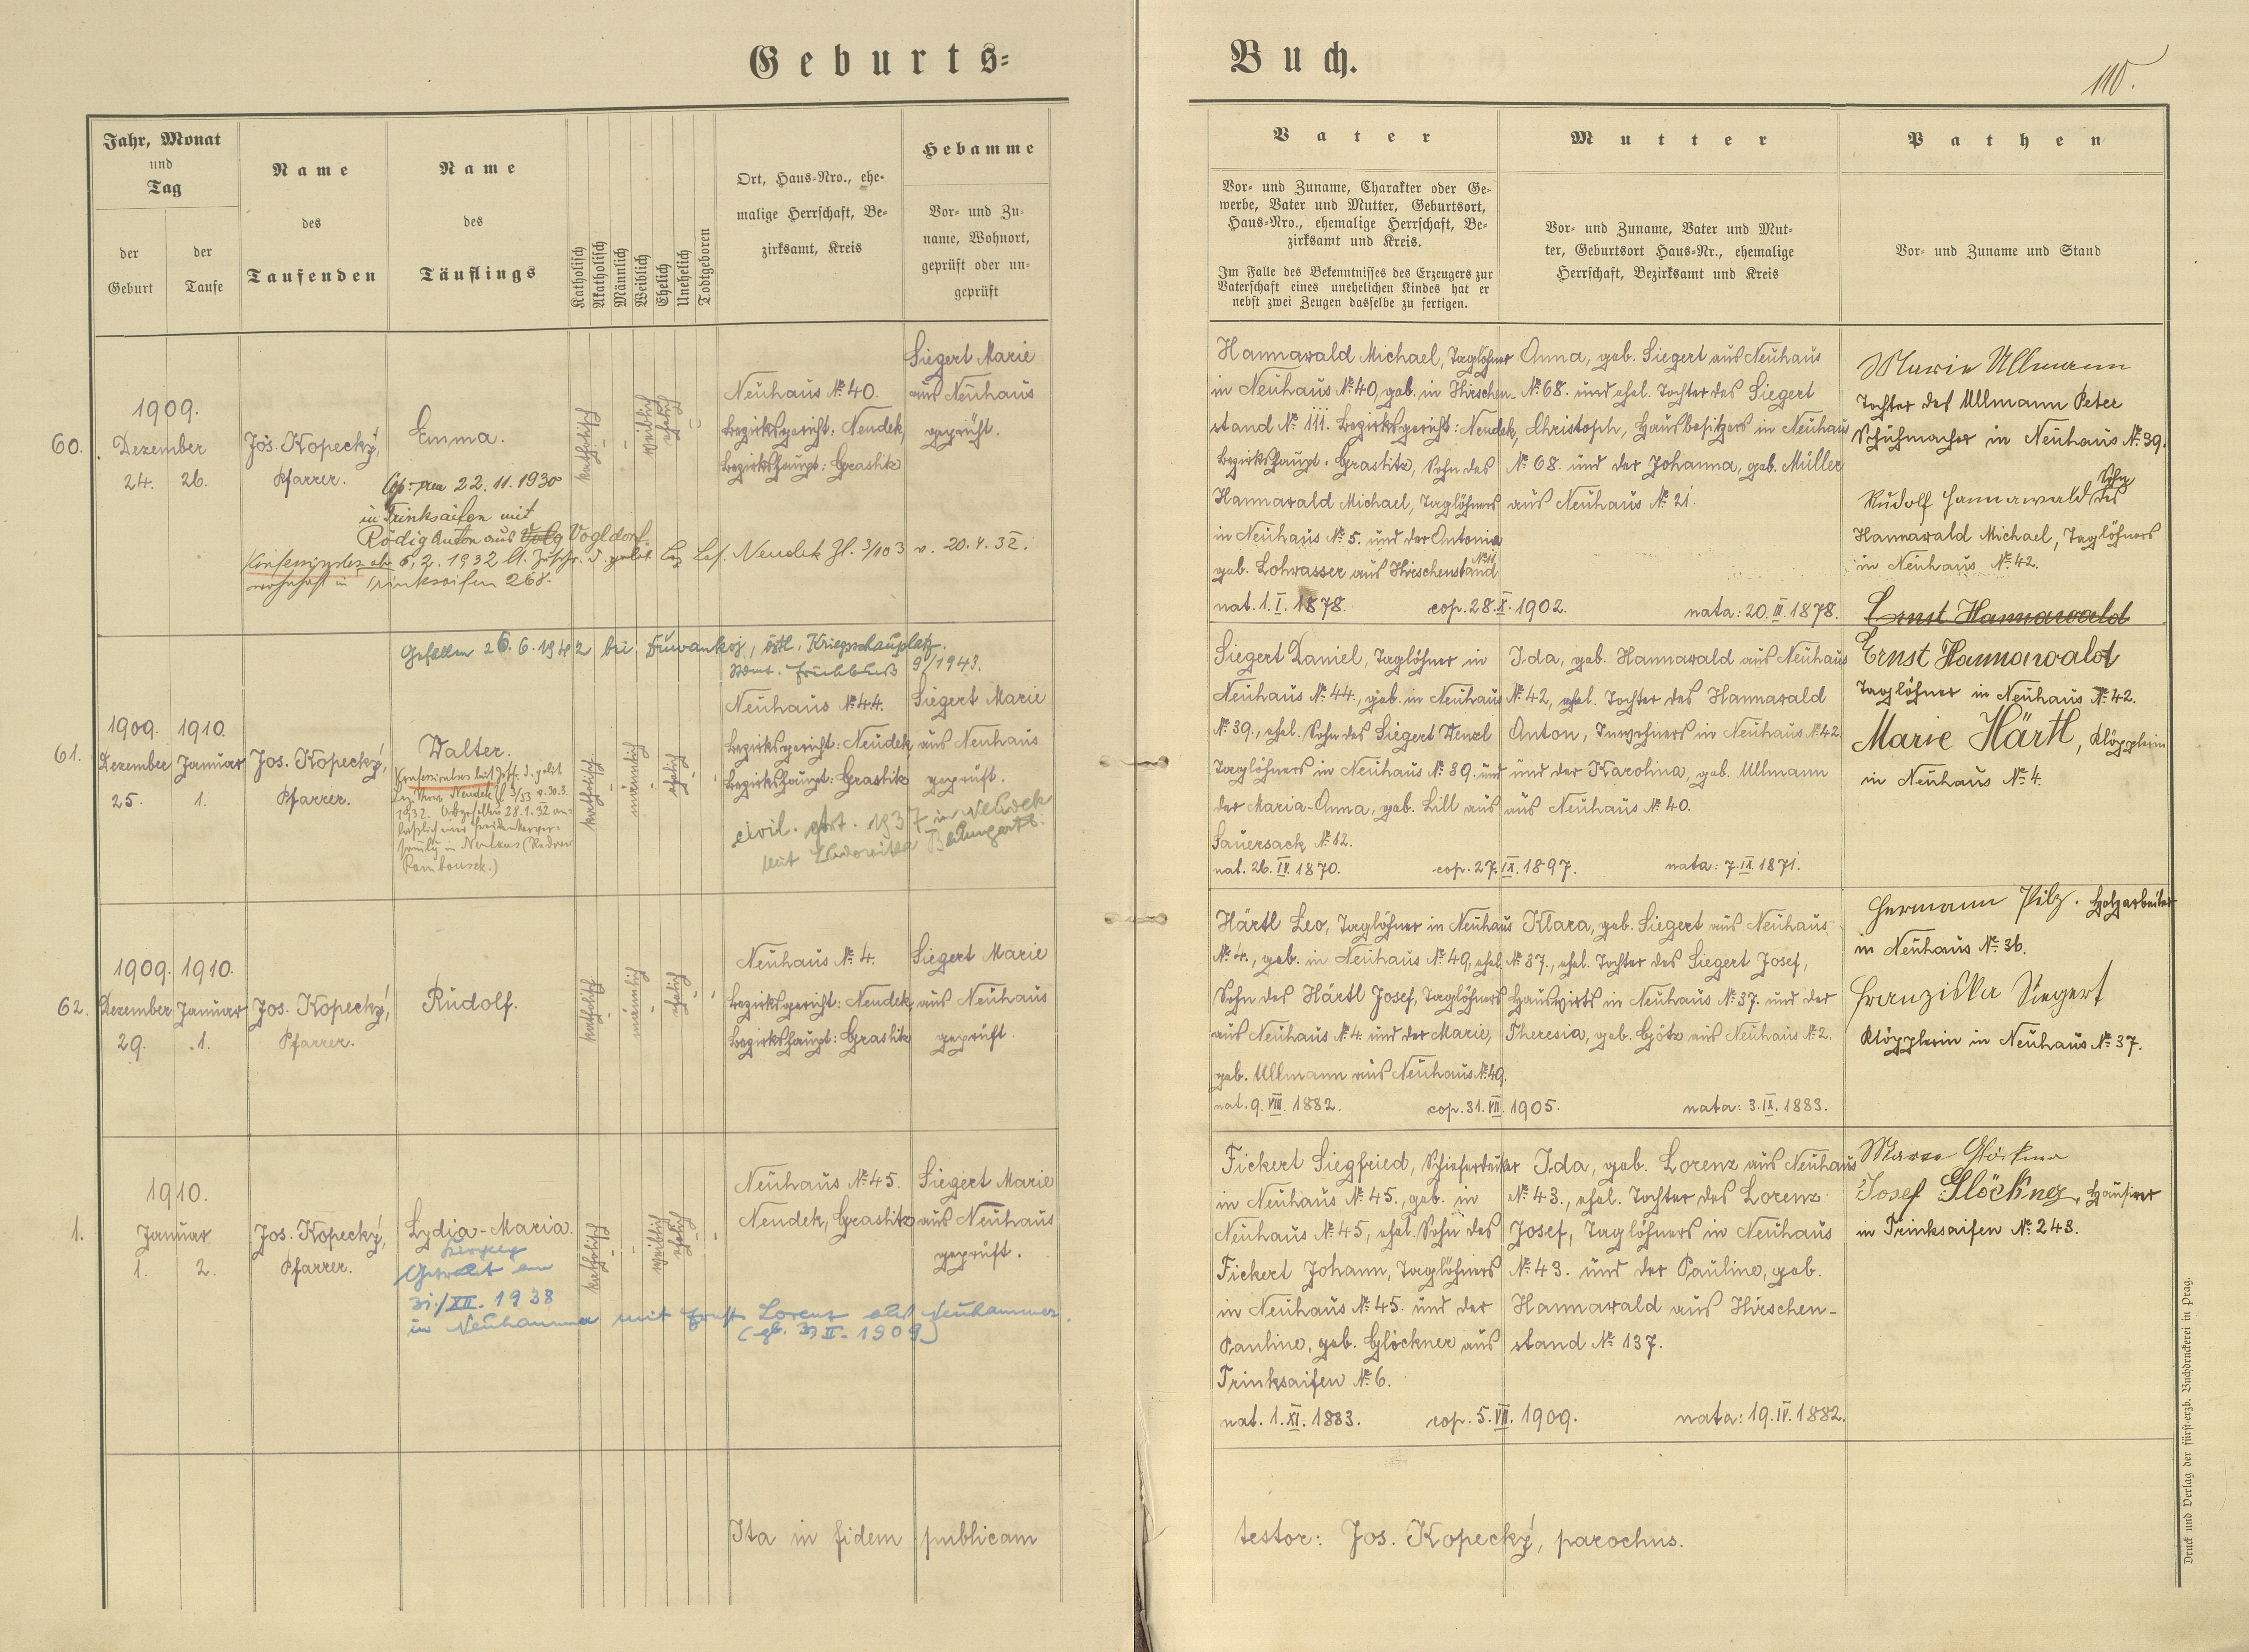 Geburts=
Buch.
110.
Jahr, Monat
und
Tag
der
Geburt
der
Taufe
Name
des
Taufenden
Name
des
Täuflings
Katholisch
Akatholisch
Männlich
Weiblich
Ehelich
Unehelich
Todtgeboren
Ort, Haus-Nro., ehe-
malige Herrschaft, Be-
zirksamt, Kreis
Hebamme
Vor- und Zu-
name, Wohnort,
geprüft oder un-
geprüft
Vater
Vor- und Zuname, Charakter oder Ge-
werbe, Vater und Mutter, Geburtsort,
Haus-Nro., ehemalige Herrschaft, Be-
zirksamt und Kreis.
Im Falle des Bekenntnisses des Erzeugers zur
Vaterschaft eines unehelichen Kindes hat er
nebst zwei Zeugen dasselbe zu fertigen.
Mutter
Vor- und Zuname, Vater und Mut-
ter, Geburtsort Haus-Nr., ehemalige
Herrschaft, Bezirksamt und Kreis
Pathen
Vor- und Zuname und Stand
60.
1909.
Dezember
24.
26.
Jos. Kopecký,
Pfarrer.
Emma.
22.11.1930
in Trinksaifen mit
Rödig Anton aus Vogldorf.
6.2.1932 lt. Neudek Zl. 3/103 v. 20.4.32.
wohnhaft in Trinksaifen 268.
katholisch
-
-
weiblich
ehelich
-
-
Neuhaus № 40.
Bezirksgericht: Neudek,
Bezirkshaupt: Graslitz
Siegert Marie
aus Neuhaus
geprüft.
Hannawald Michael, Taglöhner
in Neuhaus № 40, geb. in Hirschen-
stand № 111. Bezirksgericht: Neudek,
Bezirkshaupt. Graslitz, Sohn des
Hannawald Michael, Taglöhners
in Neuhaus № 5. und der Antonia
geb. Lohwasser aus Hirschenstand
nat. 1.I.1878.
cop. 28.X.1902.
Anna, geb. Siegert aus Neuhaus
№ 68. und ehel. Tochter des Siegert
Christoph, Hausbesitzers in Neuhaus
№ 68. und der Johanna, geb. Müller
aus Neuhaus № 21.
nata: 20.III.1878.
Marie Ullmann
Tochter des Ullmann Peter
Schuhmacher in Neuhaus № 39.
Rudolf Hannawald Sohn des
Hannawald Michael, Taglöhners
in Neuhaus № 42.
Ernst Hannawald
61.
Gefallen 26.6.1942 bei Duwankoj, östl. Kriegsschauplatz.
Frühbuß 9/1943.
1909.
Dezember
25.
1910.
Januar
1.
Jos. Kopecký,
Pfarrer.
Walter.
Neudek Zl 3/53 v. 30.3.
1932. 28.1.32
in Neuhaus
katholisch
-
männlich
-
ehelich
-
-
Neuhaus № 44.
Bezirksgericht: Neudek
Bezirkshaupt: Graslitz
civil. 1937 in Neudek
mit Baumgartl.
Siegert Marie
aus Neuhaus
geprüft.
Siegert Daniel, Taglöhner in
Neuhaus № 44., geb. in Neuhaus
№ 39., ehel. Sohn des Siegert Wenzl
Taglöhners in Neuhaus № 39. und
der Maria-Anna, geb. Lill aus
Sauersack № 12.
nat. 26.IV.1870.
cop. 27.IX.1897.
Ida, geb. Hannawald aus Neuhaus
№ 42, ehel. Tochter des Hannawald
Anton, Inwohners in Neuhaus № 42.
und der Karolina, geb. Ullmann
aus Neuhaus № 40.
nata: 7.IX.1871.
Ernst Hannawald
Taglöhner in Neuhaus № 42.
Marie Härtl, Klöpplerin
in Neuhaus № 4.
62.
1909.
Dezember
29.
1910.
Januar
1.
Jos. Kopecký,
Pfarrer.
Rudolf.
katholisch
-
männlich
-
ehelich
-
-
Neuhaus № 4.
Bezirksgericht: Neudek,
Bezirkshaupt: Graslitz
Siegert Marie
aus Neuhaus
geprüft.
Härtl Leo, Taglöhner in Neuhaus
№ 4., geb. in Neuhaus № 49, ehel.
Sohn des Härtl Josef, Taglöhners
aus Neuhaus № 4. und der Marie,
geb. Ullmann aus Neuhaus № 49.
nat. 9.VIII.1882.
cop. 31.VII.1905.
Klara, geb. Siegert aus Neuhaus
№ 37., ehel. Tochter des Siegert Josef,
Hauswirts in Neuhaus № 37. und der
Theresia, geb. Götz aus Neuhaus № 2.
nata: 3.IX.1883.
Hermann Pilz. Holzarbeiter
in Neuhaus № 36.
Franziska Siegert
Klöpplerin in Neuhaus № 37.
1.
1910.
Januar
1.
2.
Jos. Kopecký,
Pfarrer.
Lydia-Maria.
Getraut am
31./XII.1938
in Neuhammer mit Ernst Lorenz aus Neuhammer.
katholisch
-
-
weiblich
ehelich
-
-
Neuhaus № 45.
Neudek, Graslitz
Siegert Marie
aus Neuhaus
geprüft.
Fickert Siegfried, Schieferdecker
in Neuhaus № 45., geb. in
Neuhaus № 45, ehel. Sohn des
Fickert Johann, Taglöhners
in Neuhaus № 45. und der
Pauline, geb. Glöckner aus
Trinksaifen № 6.
nat. 1.XI.1883.
cop. 5.VII.1909.
Ida, geb. Lorenz aus Neuhaus
№ 43., ehel. Tochter des Lorenz
Josef, Taglöhners in Neuhaus
№ 43. und der Pauline, geb.
Hannawald aus Hirschen-
stand № 137.
nata: 19.IV.1882.
Josef Glöckner, Hausirer
in Trinksaifen № 243.
Ita in fidem publicam
testor: Jos. Kopecký, parochus.
Druck und Verlag der fürst-erzb. Buchdruckerei in Prag.